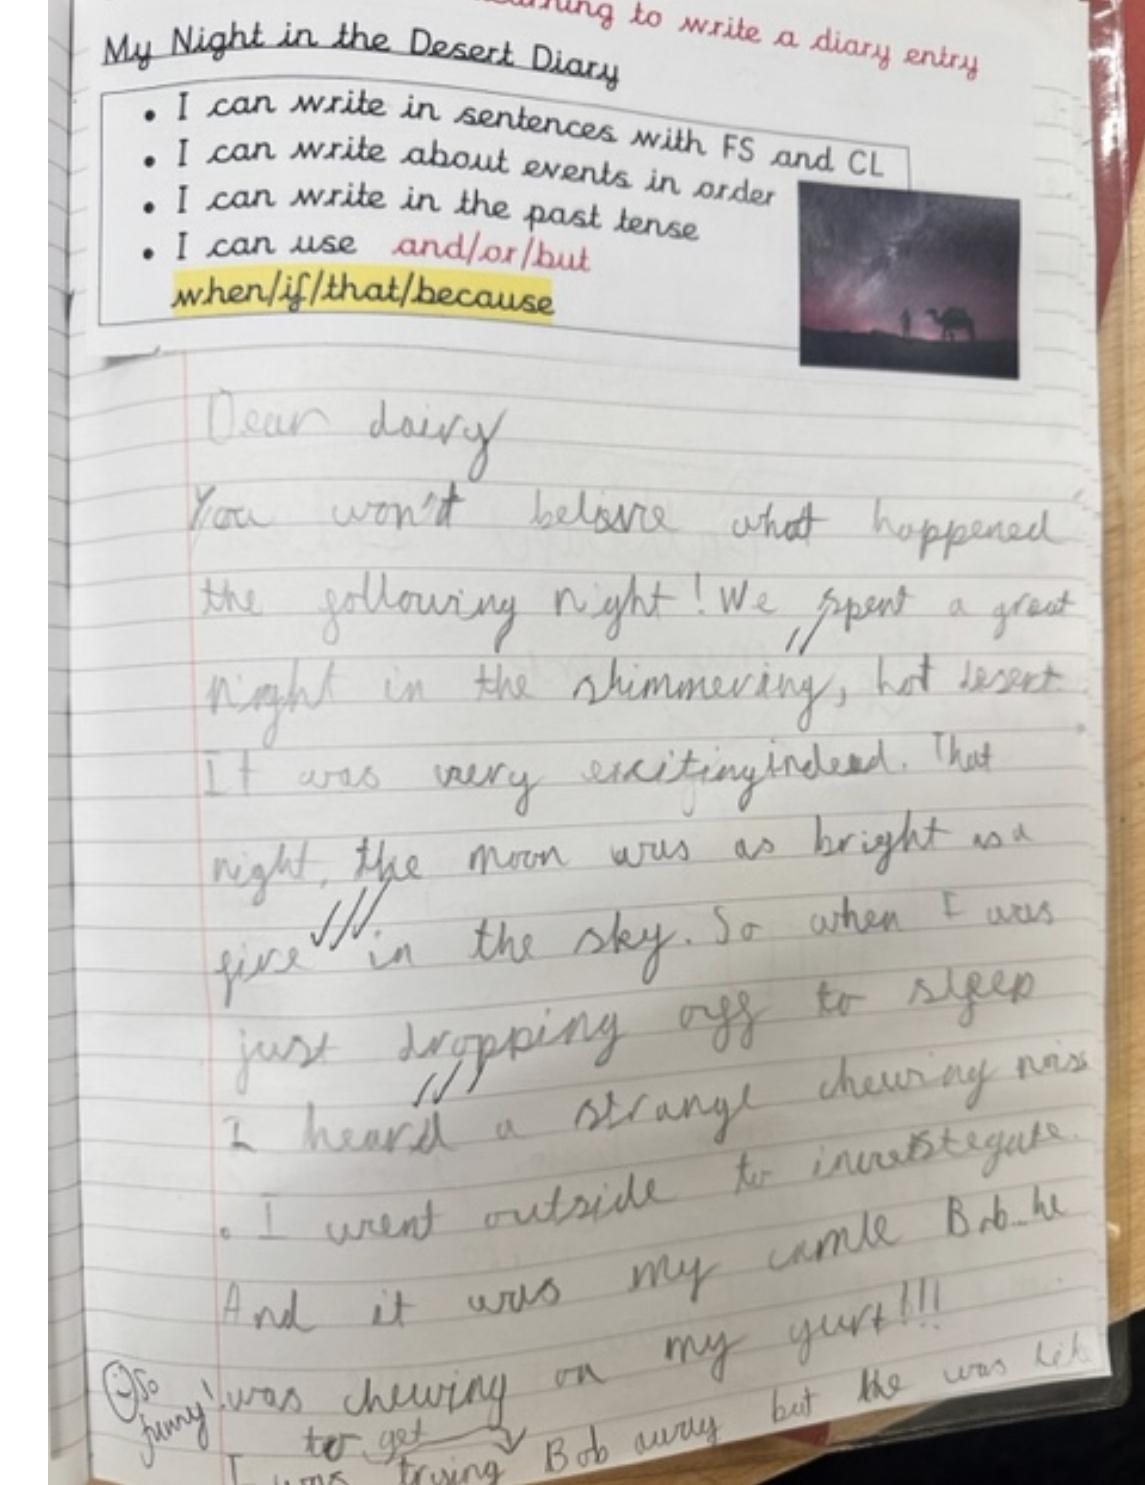 to write a diary entry
My Night in the Desert Diary
• I can write in sentences with FS and CL
• I can write about events in order
• I can write in the past tense
• I can use and/or/but
when/if/that/because
Dear dairy
You won't what happened
the following night! We spent a great
night in the shimmering, hot desert.
It was very exciting indeed. That
night, the moon was as bright as a
fire in the sky. So when I was
just dropping off to sleep
I heard a strange chewing nois
. I went outside to
And it was my camle Bob...he
was chewing on my yurt!!!
So
funny!
to get
I was trying Bob away but he was